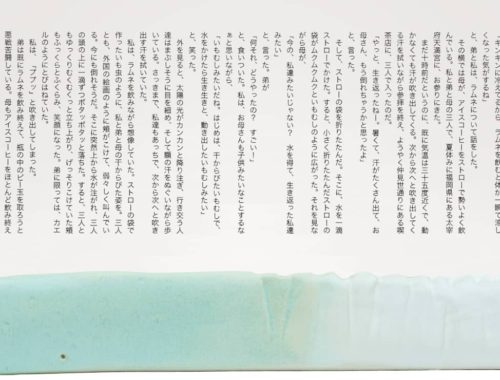 「キンキンに冷えてるから、ラムネを飲むと体が一瞬で涼し
くなった気がするね」
と、弟と私は、ラムネについて話をした。
その横では母が、アイスコーヒーをストローで勢いよく飲
んでいた。私と弟と母の三人で、夏休みに福岡県にある太宰
府天満宮に、お参りにきた。
まだ十時前だというのに、既に気温は三十五度近くで、動
かなくても汗が吹き出してくる。次から次へと吹き出してく
る汗を拭いながら参拝を終え、ようやく仲見世通りにある喫
茶店に、三人で入ったのだ。
「やっと、生き返ったねー。暑くて、汗がたくさん出て、お
母さん、もう倒れちゃうかと思ったよ」
と、言った。
そして、ストローの袋を折りたたんだ。そこに、水を一滴
ストローでかけた。すると、小さく折りたたんだストローの
袋がムクムクムクといもむしのように広がった。それを見な
がら、母が、
「今の、私達みたいじゃない？　水を得て、生き返った私達
みたい」
と、言った。弟が
「何それ、どうやったの？　すごい！」
と、食いついた。私は、お母さんも子供みたいなことするな
ぁと思いながら、
「いもむしみたいだね。はじめは、干からびたいもむしで、
水をかけたら生き生きと、動き出したいもむしみたい」
と、笑った。
外を見ると、太陽の光がカンカンと降り注ぎ、行き交う人
達はまぶしそうに目を細め、そして額の汗をぬぐいながら歩
いている。さっきまで、私達もあっちで、次から次へと吹き
出す汗を拭いていた。
私は、ラムネを飲みながら想像していた。ストローの袋で
作ったいも虫のように、私と弟と母の干からびた姿を。三人
とも、外国の絵画のように頬がこけて、弱々しく叫んでい
る。今にも倒れそうだ。そこに突然上から水が注がれ、三人
の頭の上に一滴ずつポタッポタッと落ちた。すると、三人と
もゆっくりむくむくっと立ち上がり、げっそりこけていた頬
もふっくらとふくらみ、笑顔になった。弟に限っては、カエ
ルのようにとびはねていた。
私は、「ププッ」と吹き出してしまった。
弟は既にラムネを飲み終えて、瓶の中のビー玉を取ろうと
悪戦苦闘している。母もアイスコーヒーをほとんど飲み終え